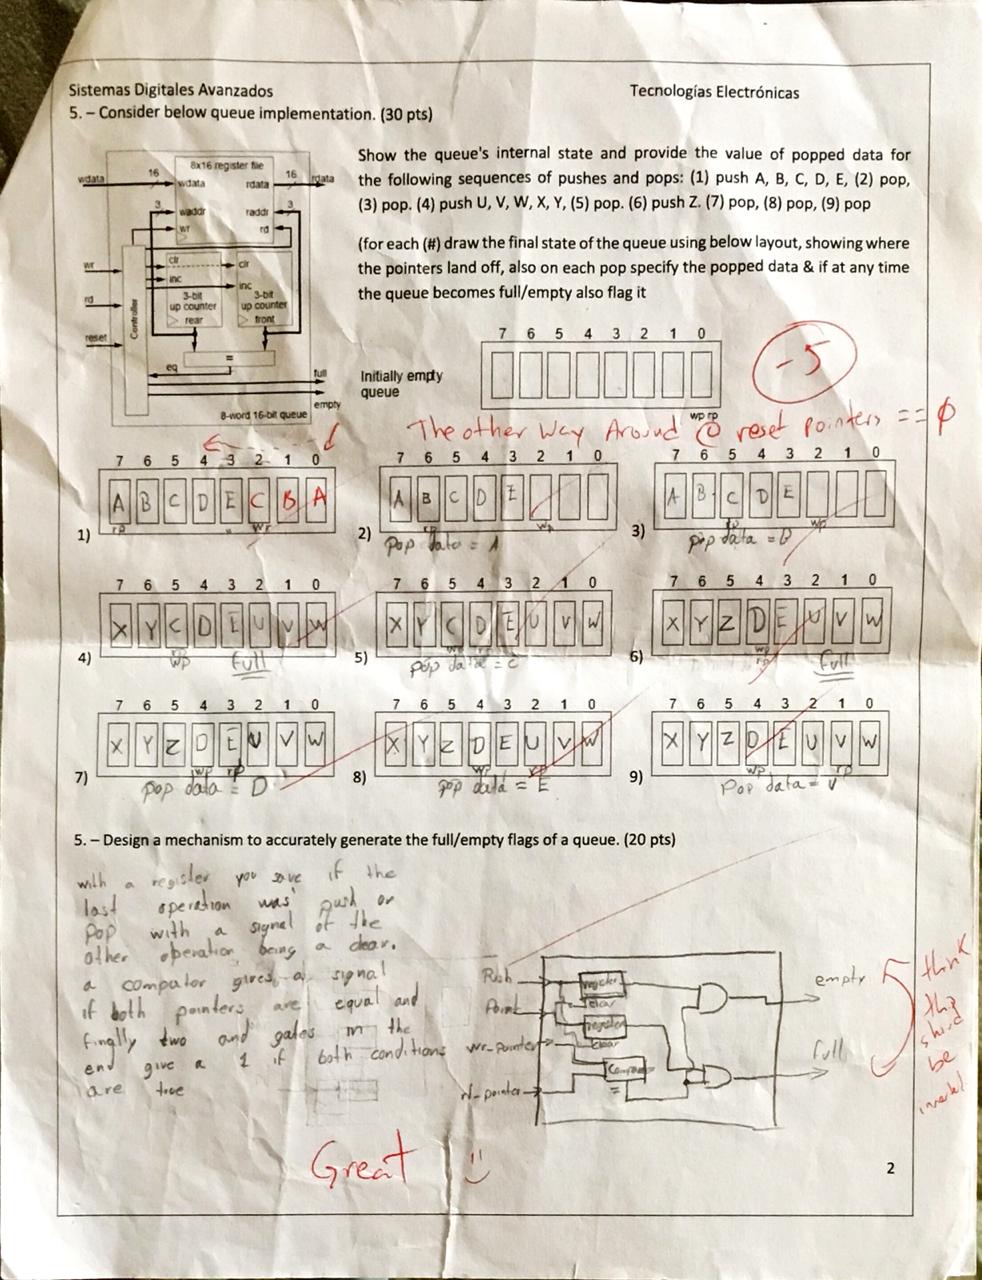 Sistemas Digitales Avanzados
Tecnologías Electrónicas
5. – Consider below queue implementation. (30 pts)
8x16 register file
wdata
16
wdata
rdata
16
rdata
3
waddr
raddr
3
wr
rd
wr
clr
clr
inc
inc
rd
3-bit
up counter
rear
3-bit
up counter
front
Controller
reset
=
eq
full
empty
8-word 16-bit queue
Show the queue's internal state and provide the value of popped data for
the following sequences of pushes and pops: (1) push A, B, C, D, E, (2) pop,
(3) pop. (4) push U, V, W, X, Y, (5) pop. (6) push Z. (7) pop, (8) pop, (9) pop
(for each (#) draw the final state of the queue using below layout, showing where
the pointers land off, also on each pop specify the popped data & if at any time
the queue becomes full/empty also flag it
7 6 5 4 3 2 1 0
Initially empty
queue
wp rp
-5
The other Way Around @ reset pointers == ϕ
7 6 5 4 3 2 1 0
A B C D E C B A
rp wr
1)
7 6 5 4 3 2 1 0
A B C D E
rp wp
2)
pop data = A
7 6 5 4 3 2 1 0
A B C D E
rp wp
3)
pop data = B
7 6 5 4 3 2 1 0
X Y C D E U V W
4)
wp
full
7 6 5 4 3 2 1 0
X Y C D E U V W
5)
pop data = C
7 6 5 4 3 2 1 0
X Y Z D E U V W
6)
wp
rp
full
7 6 5 4 3 2 1 0
X Y Z D E U V W
wp rp
7)
pop data = D
7 6 5 4 3 2 1 0
X Y Z D E U V W
wp rp
8)
pop data = E
7 6 5 4 3 2 1 0
X Y Z D E U V W
wp rp
9)
Pop data = V
5. – Design a mechanism to accurately generate the full/empty flags of a queue. (20 pts)
with a register you save if the
last operation was push or
pop with a signal of the
other operation being a clear.
a computor gives a signal
if both pointers are equal and
finglly two and gates in the
end give a 1 if both conditions
are true
Push
register
clear
register
clear
wr-pointer
Compa
=
rd-pointer
empty
full
think
this
should
be
Great :)
2